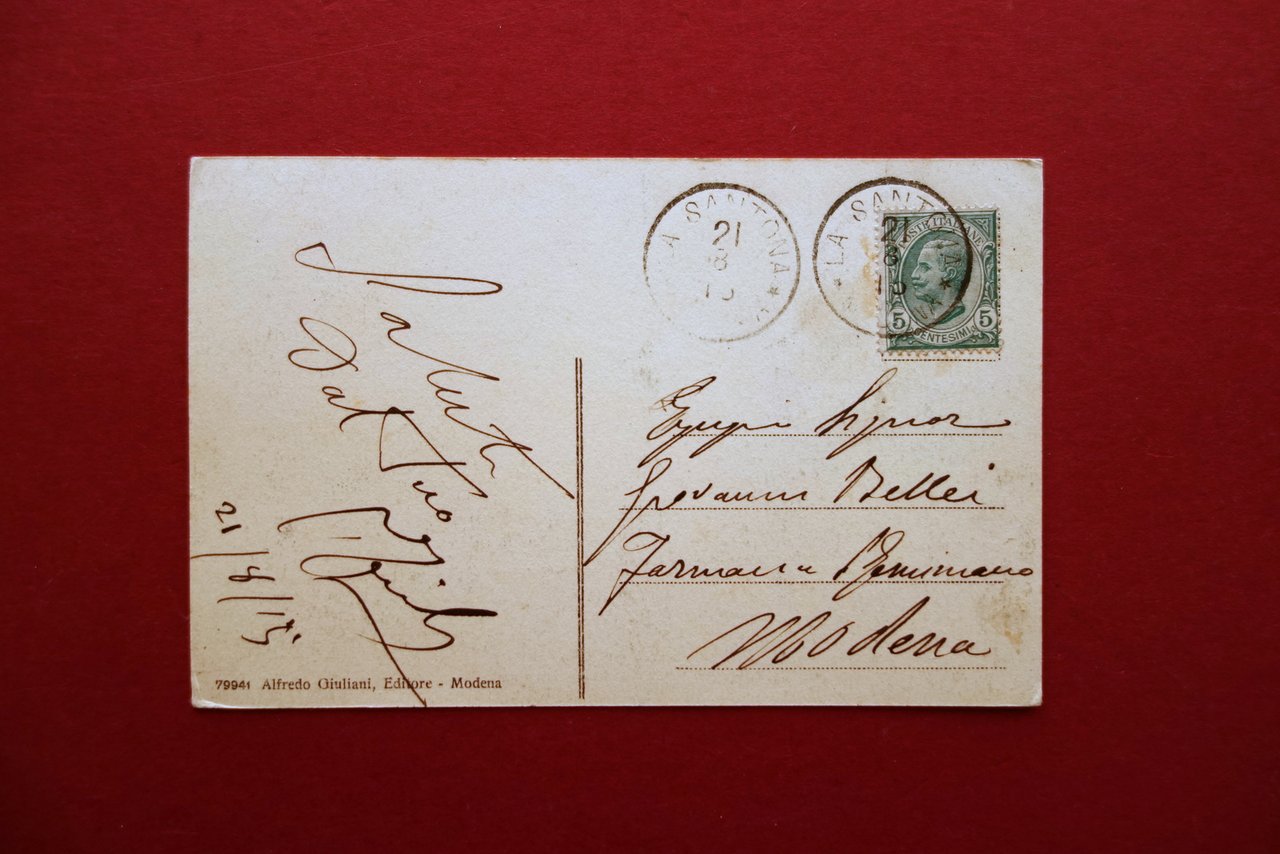 Saluti
Dal Tuo
21/8/15
79941 Alfredo Giuliani, Editore - Modena
LA SANTONA
21
8
15
LA SANTONA
21
8
15
POSTE ITALIANE
5 5
CENTESIMI
Signor
Giovanni Bellei
Farmacia
Modena